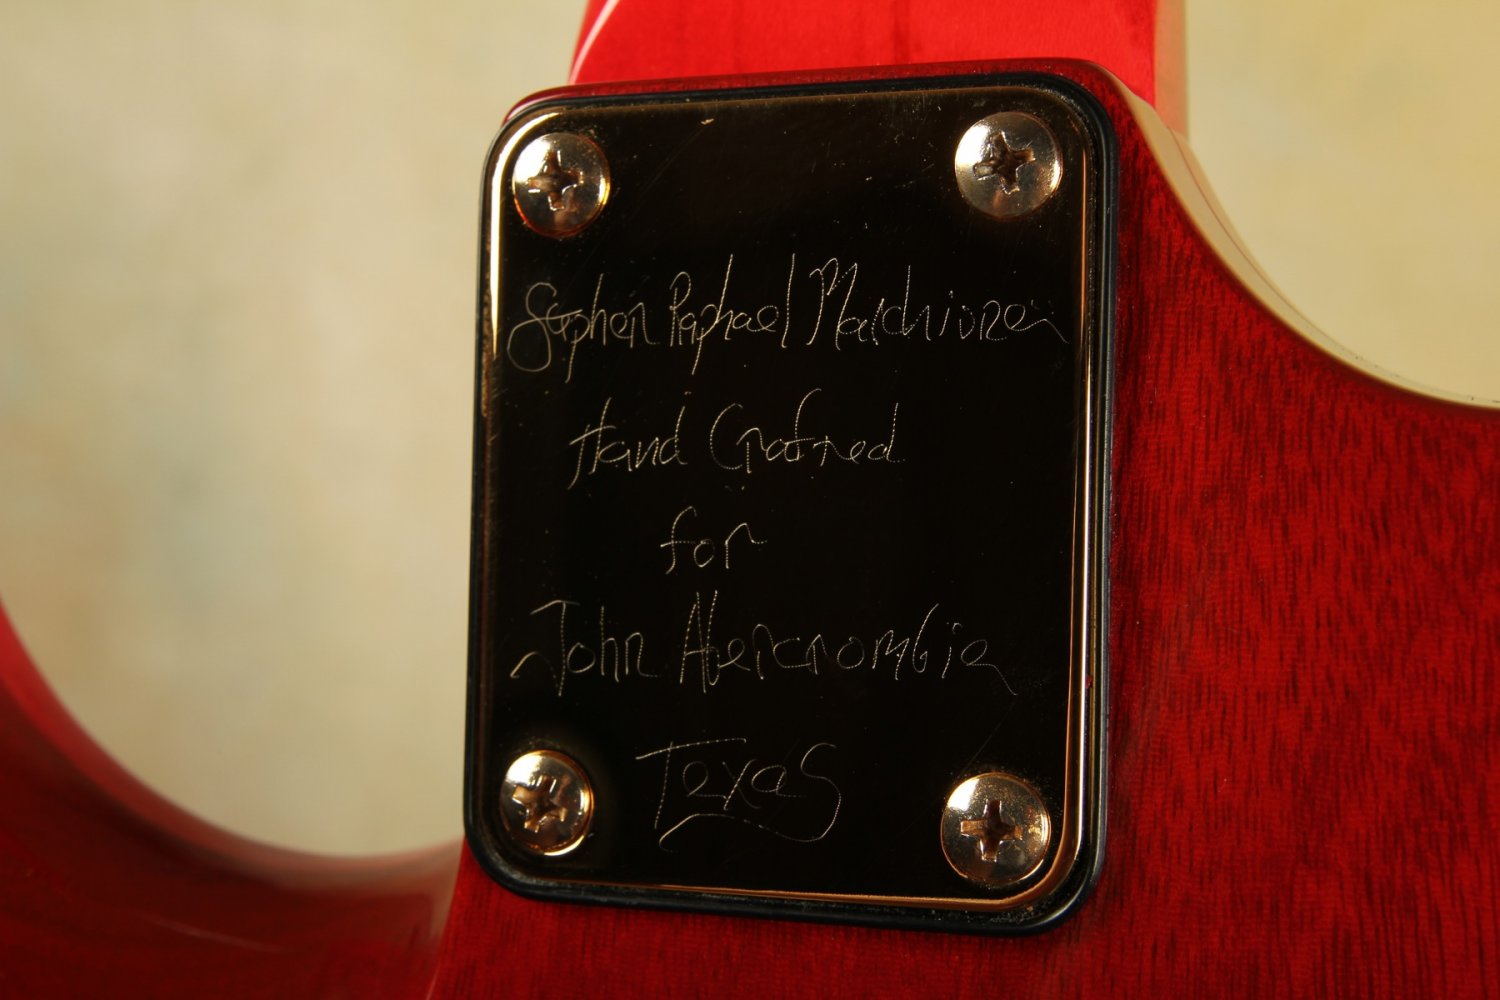 Stephen Raphael Marchione
Hand Crafted
for
John Abercrombie
Texas